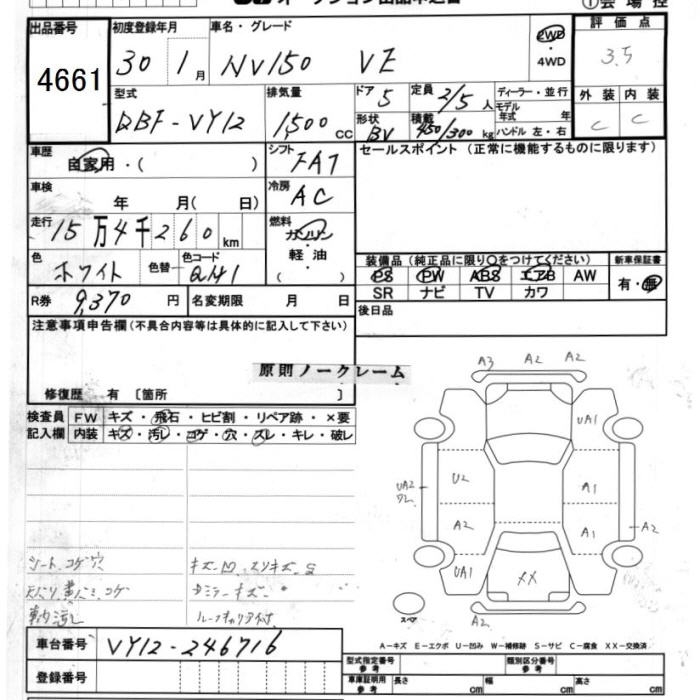 出品番号
4661
初度登録年月
30 1月
車名・グレード
NV150 VE
2WD
・4WD
評価点
3.5
型式
DBF-VY12
排気量
1,500 CC
ドア 5
定員 2/5 人
ディーラー・並行
モデル年式 年
ハンドル 左・右
形状 BV
積載 450/300 kg
外装 内装
C C
車歴
自家用・( )
シフト
FAT
セールスポイント (正常に機能するものに限ります)
車検
年 月( 日)
冷房
AC
走行
15万4千260km
燃料
ガソリン
軽油
( )
色
ホワイト
色替
色コード
QM1
装備品 (純正品に限り○をつけてください)
PS PW ABS エアB AW
SR ナビ TV カワ
新車保証書
有・無
R券 9,370 円
名変期限 月 日
後日品
注意事項申告欄(不具合内容等は具体的に記入して下さい)
原則ノークレーム
修復歴 有 〔箇所 〕
検査員記入欄
FW キズ・飛石・ヒビ割・リペア跡・×要
内装 キズ・汚レ・コゲ・穴・ズレ・キレ・破レ
A3 A2 A2
UA1
U2
UA2
A1
A2
A1
A2
UA1
XX
A2
スペア
シート、コゲ穴
キズ、凹、スリキズ、S
ドミラーキズ
車内汚レ
ルーフキャリア付
A-キズ E-エクボ U-凹み W-補修跡 S-サビ C-腐食 XX-交換済
車台番号
VY12-246716
登録番号
型式指定番号参考
類別区分番号参考
車庫証明用参考
長さ cm 幅 cm 高さ cm